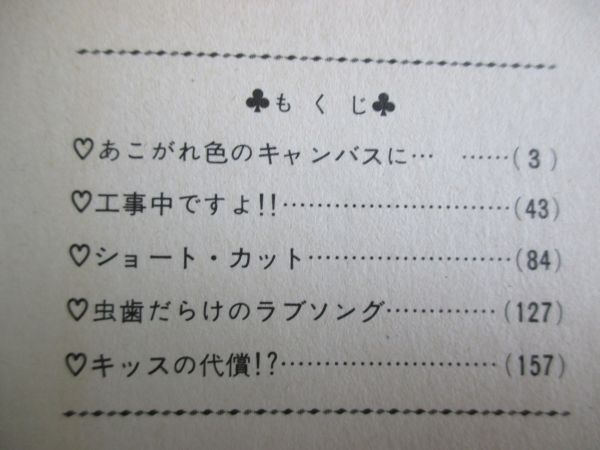 ♣もくじ♣
♡あこがれ色のキャンバスに… ……(3)
♡工事中ですよ!!………………………(43)
♡ショート・カット……………………(84)
♡虫歯だらけのラブソング…………(127)
♡キッスの代償!?……………………(157)